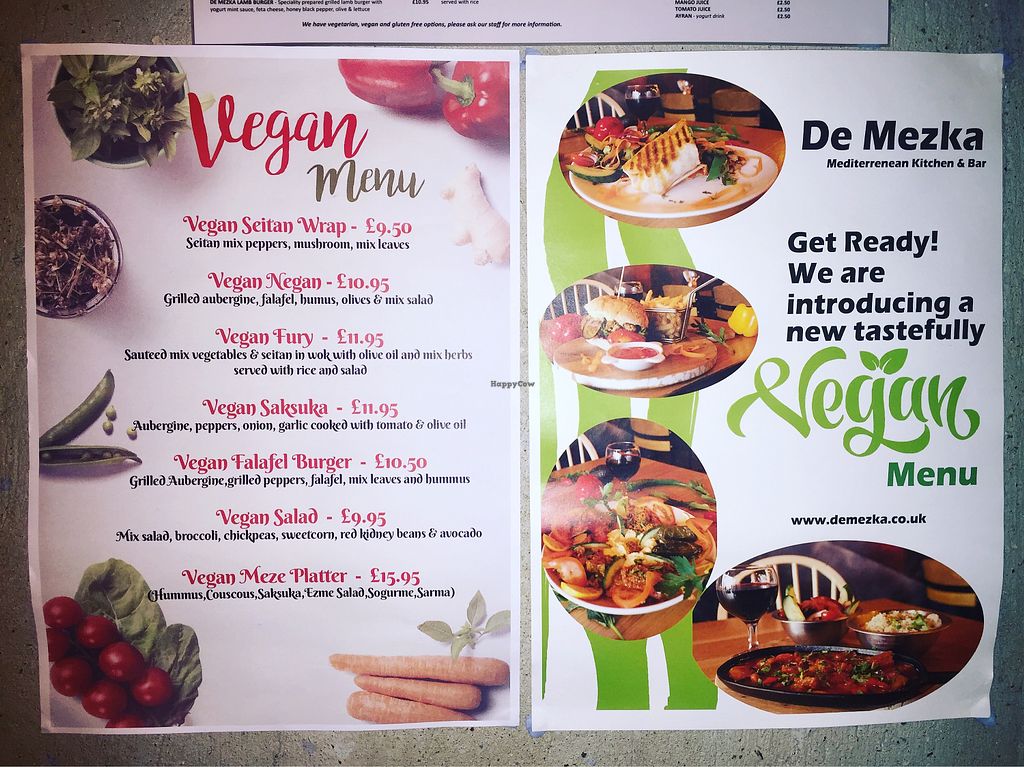 DE MEZKA LAMB BURGER - Speciality prepared grilled lamb burger with
yogurt mint sauce, feta cheese, honey black pepper, olive & lettuce
£10.95
served with rice
MANGO JUICE £2.50
TOMATO JUICE £2.50
AYRAN - yogurt drink £2.50
We have vegetarian, vegan and gluten free options, please ask our staff for more information.
Vegan
Menu
Vegan Seitan Wrap - £9.50
Seitan mix peppers, mushroom, mix leaves
Vegan Negan - £10.95
Grilled aubergine, falafel, humus, olives & mix salad
Vegan Fury - £11.95
Sauteed mix vegetables & seitan in wok with olive oil and mix herbs
served with rice and salad
Vegan Saksuka - £11.95
Aubergine, peppers, onion, garlic cooked with tomato & olive oil
Vegan Falafel Burger - £10.50
Grilled Aubergine,grilled peppers, falafel, mix leaves and hummus
Vegan Salad - £9.95
Mix salad, broccoli, chickpeas, sweetcorn, red kidney beans & avocado
Vegan Meze Platter - £15.95
(Hummus,Couscous,Saksuka,Ezme Salad,Sogurme,Sarma)
HappyCow
De Mezka
Mediterrenean Kitchen & Bar
Get Ready!
We are
introducing a
new tastefully
Vegan
Menu
www.demezka.co.uk